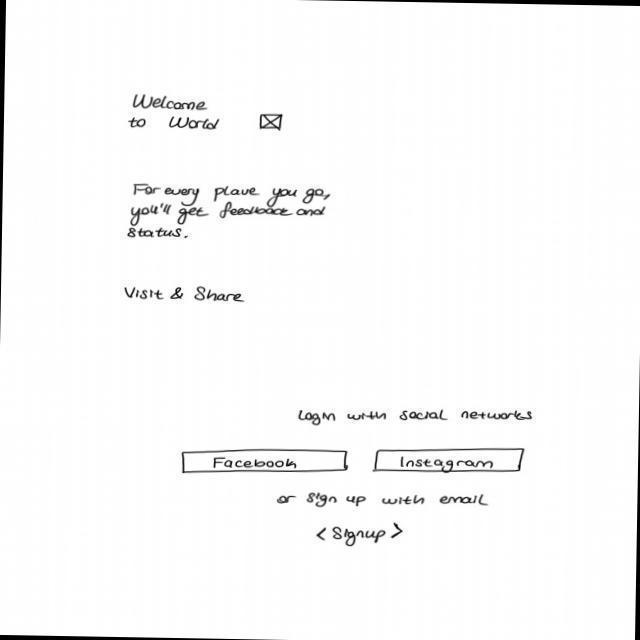 Welcome
to World
For every plave you go,
you'll get feedback and
status.
Visit & Share
Login with social networks
Facebook Instagram
or sign up with email
<Signup>